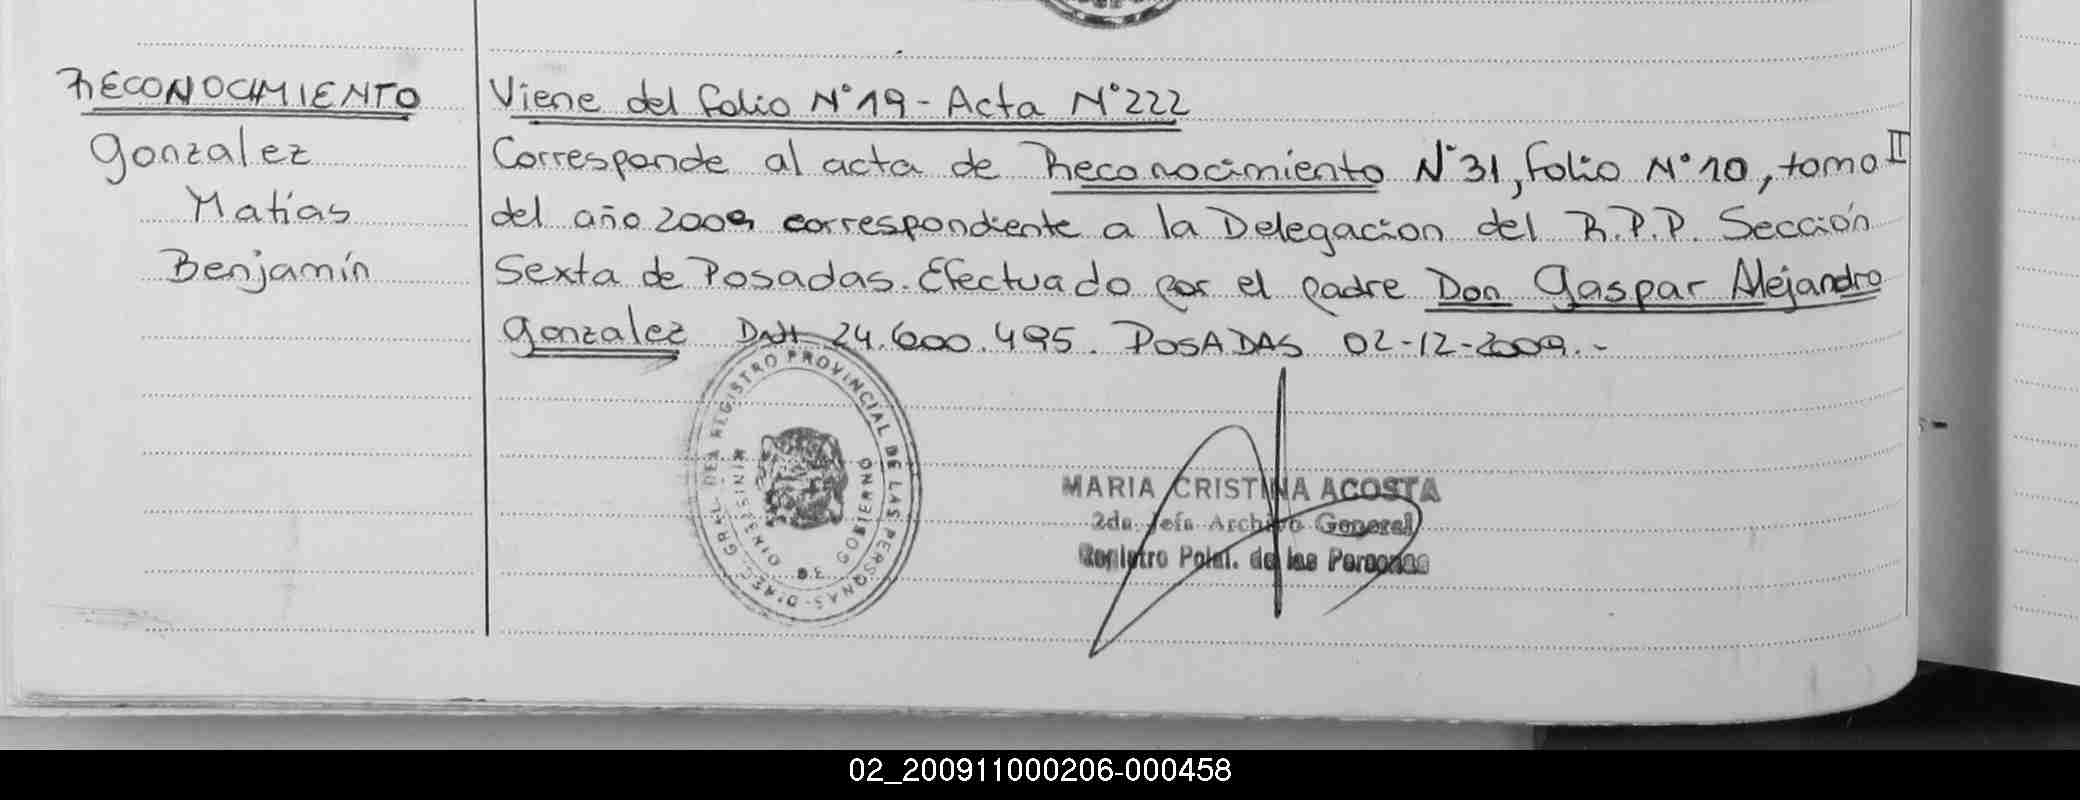 RECONOCIMIENTO
Gonzalez
Matías
Benjamín
Viene del folio N° 19 - Acta N° 222
Corresponde al acta de Reconocimiento N° 31, Folio N° 10, tomo II
del año 2009 correspondiente a la Delegacion del R.P.P. Sección
Sexta de Posadas. Efectuado por el padre Don Gaspar Alejandro
Gonzalez DNI 24.600.495. POSADAS 02-12-2009.-
DIREC. GRAL. DEL REGISTRO PROVINCIAL DE LAS PERSONAS
MINISTERIO DE GOBIERNO
MARIA CRISTINA ACOSTA
2da. Jefa Archivo General
Registro Pcial. de las Personas
02_200911000206-000458